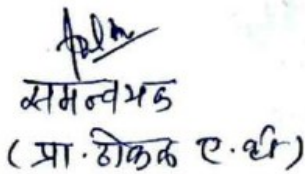 समन्वयक
(प्रा. ढोकळ ए. बी)